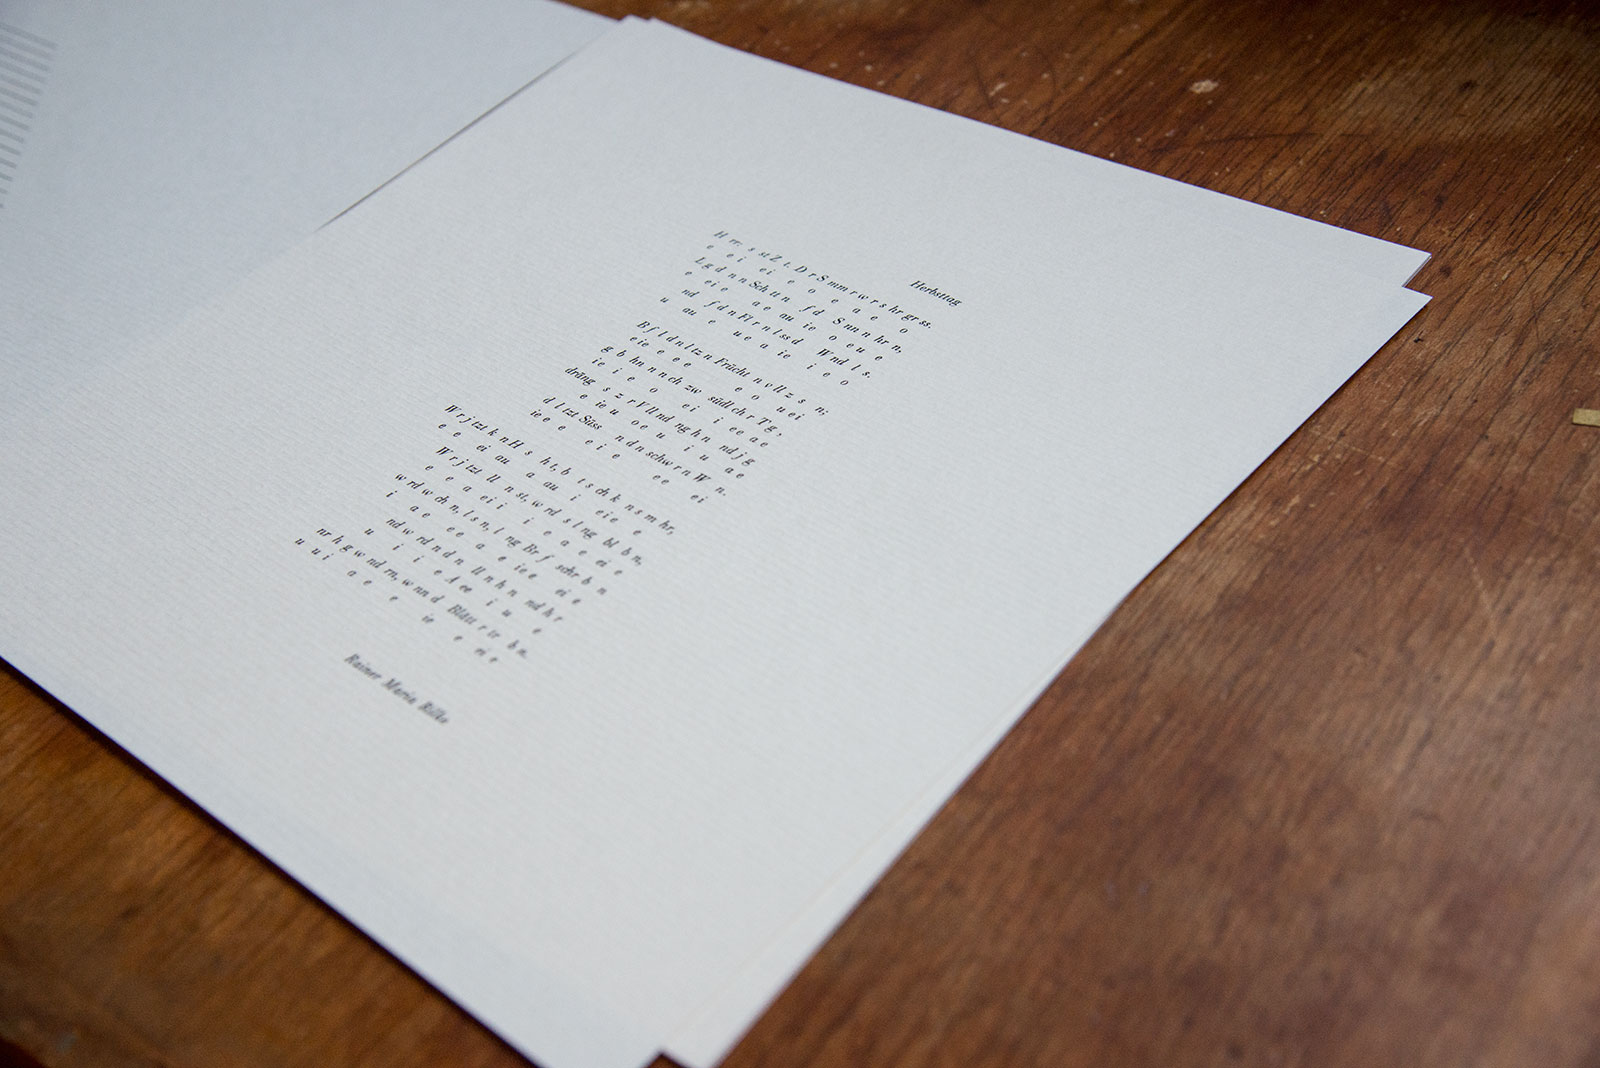 Herbsttag
H rr: s st Z t. D r S mm r w r s hr gr ss.
e e i ei e o e a e o
L g d n n Sch tt n f d S nn n hr n,
e ei e a e au ie o e u e
nd f d n Fl r n l ss d W nd l s.
u au e u e a ie i e o
B f l d n l tzt n Frücht n v ll z s n;
e ie e e e e o u ei
g b hn n n ch zw südl ch r T g ,
i e i e o ei i e e a e
dräng s z r V ll nd ng h n nd j g
e ie u o e u i u a e
d l tzt Süss n d n schw r n W n.
ie e e ei e e e ei
W r j tzt k n H s h t, b t s ch k n s m hr,
e e ei au a au i ei e e
W r j tzt ll n st, w rd s l ng bl b n,
e e a ei i i e a e ei e
w rd w ch n, l s n, l ng Br f schr b n
i a e e e a e ie e ei e
nd w rd n d n ll n h n nd h r
u i i e A e e i u e
nr h g w nd rn, w nn d Blätt r tr b n.
u u i a e e ie e ei e
Rainer Maria Rilke